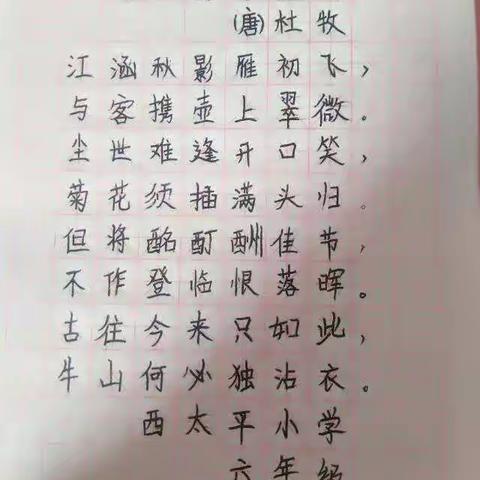 (唐)杜牧
江涵秋影雁初飞，
与客携壶上翠微。
尘世难逢开口笑，
菊花须插满头归。
但将酩酊酬佳节，
不作登临恨落晖。
古往今来只如此，
牛山何必独沾衣。
西太平小学
六年级